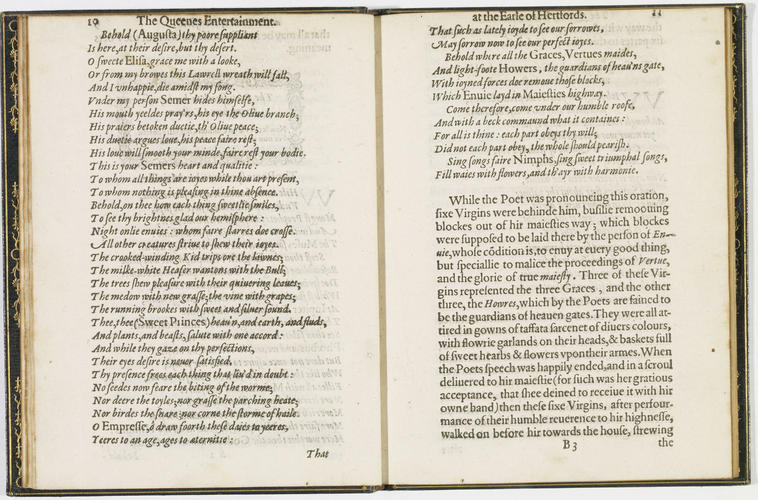 10 The Queenes Entertainment.
Behold (Augusta) thy poore ſuppliant
Is here, at their deſire, but thy deſert.
O ſweete Eliſa, grace me with a looke,
Or from my browes this Lawrell wreath will fall,
And I vnhappie, die amidſt my ſong.
Vnder my perſon Semer hides himſelfe,
His mouth yeeldes pray'rs, his eye the Oliue branch;
His praiers betoken duetie, th' Oliue peace;
His duetie argues loue, his peace faire reſt;
His loue will ſmooth your minde, faire reſt your bodie.
This is your Semers heart and qualitie:
To whom all things are ioyes while thou art preſent,
To whom nothing is pleaſing in thine abſence.
Behold, on thee how each thing ſweetlie ſmiles,
To ſee thy brightnes glad our hemiſphere:
Night onlie enuies: whom faire ſtarres doe croſſe.
All other creatures ſtriue to ſhew their ioyes.
The crooked-winding Kid trips ore the lawnes;
The milke-white Heafer wantons with the Bull;
The trees ſhew pleaſure with their quiuering leaues;
The medow with new graſſe, the vine with grapes;
The running brookes with ſweet and ſiluer ſound.
Thee, thee (Sweet Princes) heau'n, and earth, and fluds,
And plants, and beaſts, ſalute with one accord:
And while they gaze on thy perfections,
Their eyes deſire is neuer ſatisfied.
Thy preſence frees each thing that liu'd in doubt:
No ſeedes now feare the biting of the worme;
Nor deere the toyles; nor graſſe the parching heate;
Nor birdes the ſnare; nor corne the ſtorme of haile.
O Empreſſe, ô draw foorth theſe daies to yeeres,
Yeeres to an age, ages to æternitie:
That
at the Earle of Hertfords. 11
That ſuch as lately ioyde to ſee our ſorrowes,
May ſorrow now to ſee our perfect ioyes.
Behold where all the Graces, Vertues maides,
And light-foote Howers, the guardians of heau'ns gate,
With ioyned forces doe remoue thoſe blocks,
Which Enuie layd in Maieſties highway.
Come therefore, come vnder our humble roofe,
And with a beck commaund what it containes:
For all is thine: each part obeys thy will;
Did not each part obey, the whole ſhould periſh.
Sing ſongs faire Nimphs, ſing ſweet triumphal ſongs,
Fill waies with flowers, and th'ayr with harmonie.
While the Poet was pronouncing this oration,
ſixe Virgins were behinde him, buſilie remoouing
blockes out of hir maieſties way; which blockes
were ſuppoſed to be laid there by the perſon of En-
uie, whoſe cōdition is, to enuy at euery good thing,
but ſpeciallie to malice the proceedings of Vertue,
and the glorie of true maieſty. Three of theſe Vir-
gins repreſented the three Graces, and the other
three, the Howres, which by the Poets are fained to
be the guardians of heauen gates. They were all at-
tired in gowns of taffata ſarcenet of diuers colours,
with flowrie garlands on their heads, & baskets full
of ſweet hearbs & flowers vpon their armes. When
the Poets ſpeech was happily ended, and in a ſcroul
deliuered to hir maieſtie (for ſuch was her gratious
acceptance, that ſhee deined to receiue it with hir
owne hand) then theſe ſixe Virgins, after perfour-
mance of their humble reuerence to hir highneſſe,
walked on before hir towards the houſe, ſtrewing
B 3 the